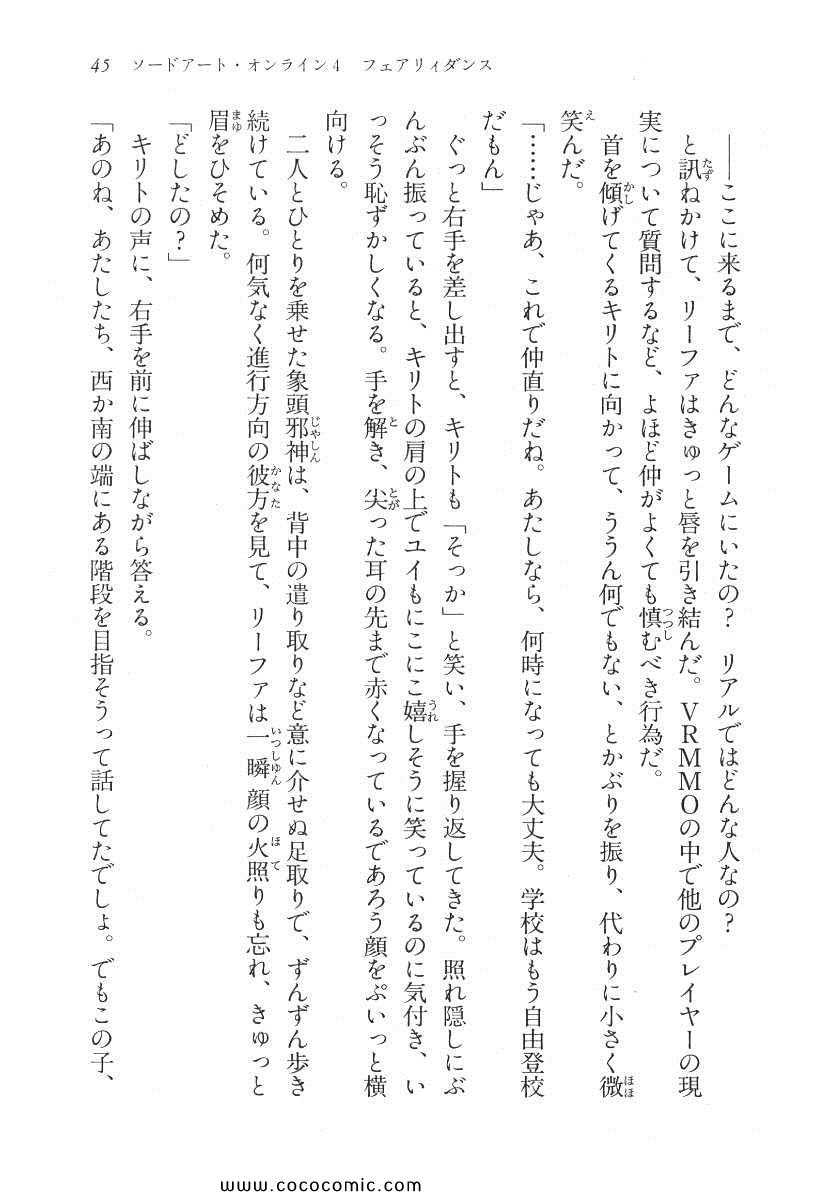 45 ソードアート・オンライン4 フェアリィダンス
――ここに来るまで、どんなゲームにいたの? リアルではどんな人なの?
と訊ねかけて、リーファはきゅっと唇を引き結んだ。VRMMOの中で他のプレイヤーの現
実について質問するなど、よほど仲がよくても慎むべき行為だ。
首を傾げてくるキリトに向かって、ううん何でもない、とかぶりを振り、代わりに小さく微
笑んだ。
「……じゃあ、これで仲直りだね。あたしなら、何時になっても大丈夫。学校はもう自由登校
だもん」
ぐっと右手を差し出すと、キリトも「そっか」と笑い、手を握り返してきた。照れ隠しにぶ
んぶん振っていると、キリトの肩の上でユイもにこにこ嬉しそうに笑っているのに気付き、い
っそう恥ずかしくなる。手を解き、尖った耳の先まで赤くなっているであろう顔をぷいっと横
向ける。
二人とひとりを乗せた象頭邪神は、背中の遣り取りなど意に介せぬ足取りで、ずんずん歩き
続けている。何気なく進行方向の彼方を見て、リーファは一瞬顔の火照りも忘れ、きゅっと
眉をひそめた。
「どしたの?」
キリトの声に、右手を前に伸ばしながら答える。
「あのね、あたしたち、西か南の端にある階段を目指そうって話してたでしょ。でもこの子、
www.cococomic.com